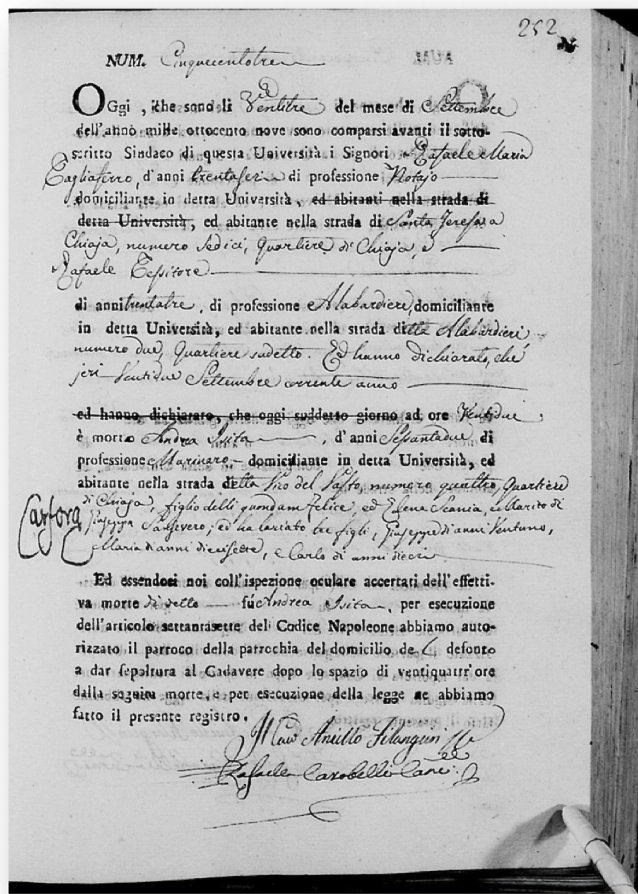 252
NUM. Cinquecentotre
OGgi, che sono li Ventitre del mese di Settembre
dell'anno mille ottocento nove sono comparsi avanti il sotto-
scritto Sindaco di questa Università i Signori Rafaele Maria
Tagliaferro, d'anni trentasei di professione Notajo
domiciliante in detta Università, ed abitanti nella strada di
detta Università, ed abitante nella strada di Santa Teresa a
Chiaja, numero sedici, Quartiere di Chiaja, e
Rafaele Tessitore
di anni trentatre, di professione Alabardiere, domiciliante
in detta Università, ed abitante nella strada detta Alabardieri
numero due, Quartiere sudetto. Ed hanno dichiarato, che
jeri Ventidue Settembre corrente anno
ed hanno dichiarato, che oggi suddetto giorno ad ore Ventidue
è morto Andrea Isita, d'anni Sessantadue di
professione Marinaro domiciliante in detta Università, ed
abitante nella strada detta Vico del Vasto, numero quattro, Quartiere
di Chiaja, figlio delli quondam Felice, ed Elena Scania, e Marito di
Giuseppa Sansevero; ed ha lasciato tre figli, Giuseppe di anni Ventuno,
Maria di anni diecisette, e Carlo di anni dieci
Ed essendosi noi coll'ispezione oculare accertati dell'effetti-
va morte di detto fú Andrea Isita, per esecuzione
dell'articolo settantasette del Codice Napoleone abbiamo auto-
rizzato il parroco della parrochia del domicilio del defonto
a dar sepoltura al Cadavere dopo lo spazio di ventiquattr'ore
dalla seguita morte, e per esecuzione della legge ne abbiamo
fatto il presente registro.
Filangieri
Rafaele Carobelli Canc.